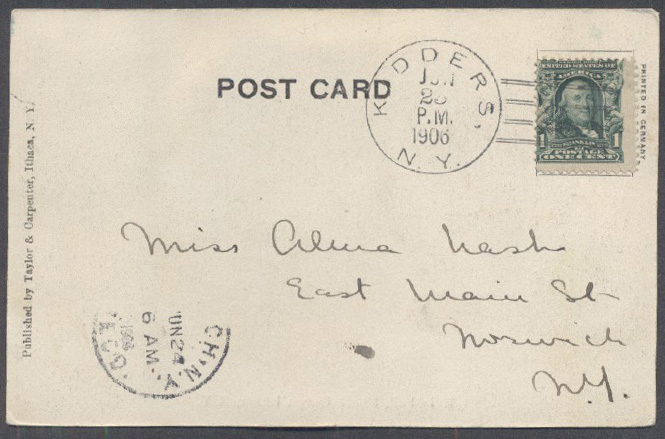 POST CARD
KIDDERS,
JUN
23
P.M.
1906
N. Y.
UNITED STATES OF
AMERICA
1 FRANKLIN 1
POSTAGE
ONE CENT
PRINTED IN GERMANY.
Published by Taylor & Carpenter, Ithaca, N. Y.
Miss Alma Nash
East Main St
Norwich
N.Y.
CH. N. Y.
JUN 24
6 AM
1906
REC'D.